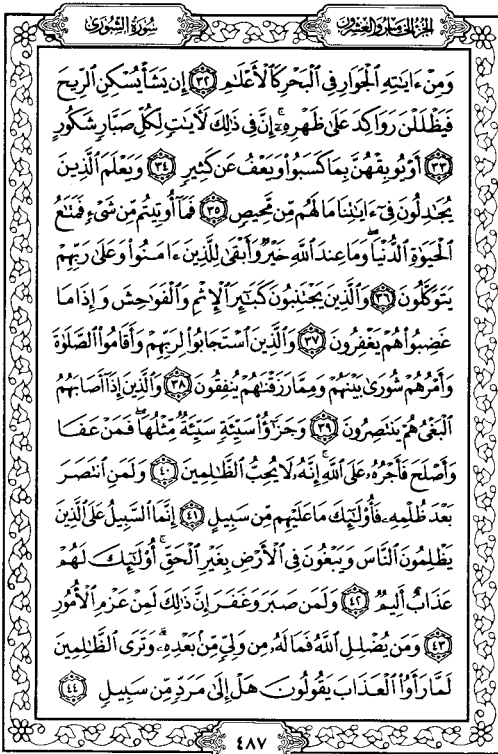 الجزء الخامس والعشرون سورة الشورى
وَمِنْ ءَايَٰتِهِ ٱلْجَوَارِ فِى ٱلْبَحْرِ كَٱلْأَعْلَٰمِ ٣٢ إِن يَشَأْ يُسْكِنِ ٱلرِّيحَ
فَيَظْلَلْنَ رَوَاكِدَ عَلَىٰ ظَهْرِهِۦٓ ۚ إِنَّ فِى ذَٰلِكَ لَءَايَٰتٍ لِّكُلِّ صَبَّارٍ شَكُورٍ
٣٣ أَوْ يُوبِقْهُنَّ بِمَا كَسَبُوا۟ وَيَعْفُ عَن كَثِيرٍ ٣٤ وَيَعْلَمَ ٱلَّذِينَ
يُجَٰدِلُونَ فِىٓ ءَايَٰتِنَا مَا لَهُم مِّن مَّحِيصٍ ٣٥ فَمَآ أُوتِيتُم مِّن شَىْءٍ فَمَتَٰعُ
ٱلْحَيَوٰةِ ٱلدُّنْيَا ۖ وَمَا عِندَ ٱللَّهِ خَيْرٌ وَأَبْقَىٰ لِلَّذِينَ ءَامَنُوا۟ وَعَلَىٰ رَبِّهِمْ
يَتَوَكَّلُونَ ٣٦ وَٱلَّذِينَ يَجْتَنِبُونَ كَبَٰٓئِرَ ٱلْإِثْمِ وَٱلْفَوَٰحِشَ وَإِذَا مَا
غَضِبُوا۟ هُمْ يَغْفِرُونَ ٣٧ وَٱلَّذِينَ ٱسْتَجَابُوا۟ لِرَبِّهِمْ وَأَقَامُوا۟ ٱلصَّلَوٰةَ
وَأَمْرُهُمْ شُورَىٰ بَيْنَهُمْ وَمِمَّا رَزَقْنَٰهُمْ يُنفِقُونَ ٣٨ وَٱلَّذِينَ إِذَآ أَصَابَهُمُ
ٱلْبَغْىُ هُمْ يَنتَصِرُونَ ٣٩ وَجَزَٰٓؤُا۟ سَيِّئَةٍ سَيِّئَةٌ مِّثْلُهَا ۖ فَمَنْ عَفَا
وَأَصْلَحَ فَأَجْرُهُۥ عَلَى ٱللَّهِ ۚ إِنَّهُۥ لَا يُحِبُّ ٱلظَّٰلِمِينَ ٤٠ وَلَمَنِ ٱنتَصَرَ
بَعْدَ ظُلْمِهِۦ فَأُو۟لَٰٓئِكَ مَا عَلَيْهِم مِّن سَبِيلٍ ٤١ إِنَّمَا ٱلسَّبِيلُ عَلَى ٱلَّذِينَ
يَظْلِمُونَ ٱلنَّاسَ وَيَبْغُونَ فِى ٱلْأَرْضِ بِغَيْرِ ٱلْحَقِّ ۚ أُو۟لَٰٓئِكَ لَهُمْ
عَذَابٌ أَلِيمٌ ٤٢ وَلَمَن صَبَرَ وَغَفَرَ إِنَّ ذَٰلِكَ لَمِنْ عَزْمِ ٱلْأُمُورِ
٤٣ وَمَن يُضْلِلِ ٱللَّهُ فَمَا لَهُۥ مِن وَلِىٍّ مِّنۢ بَعْدِهِۦ ۗ وَتَرَى ٱلظَّٰلِمِينَ
لَمَّا رَأَوُا۟ ٱلْعَذَابَ يَقُولُونَ هَلْ إِلَىٰ مَرَدٍّ مِّن سَبِيلٍ ٤٤
٤٨٧